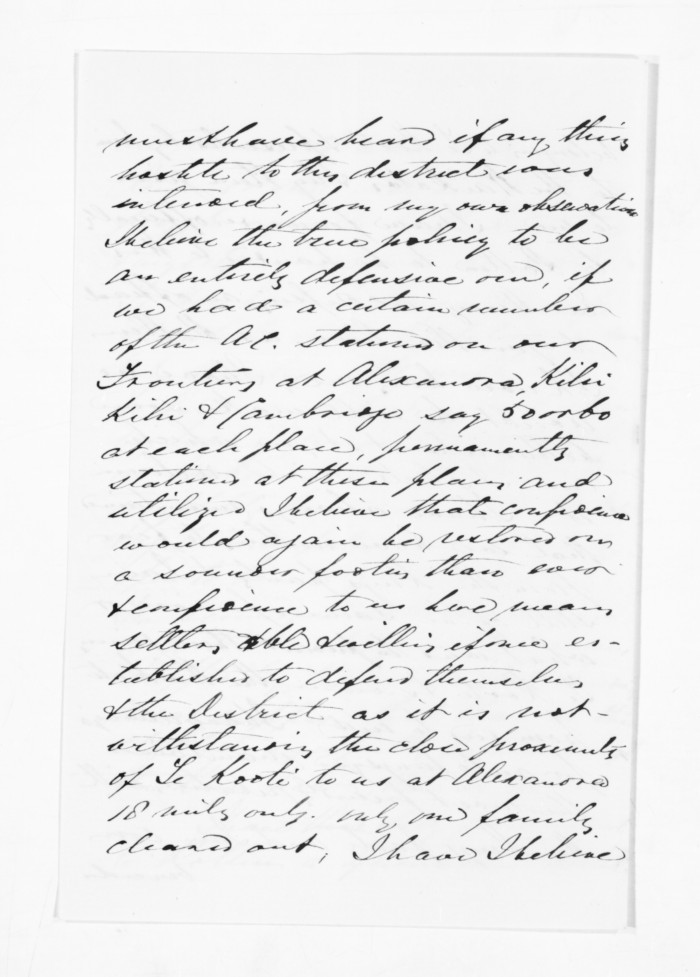 must have heard if any thing
hostile to this district was
intended, from my own observation
I believe the true policy to be
an entirely defensive one, if
we had a certain number
of the A.C. stationed on our
Frontiers at Alexandra, Kihi
Kihi & Cambridge say 50 or 60
at each place, permanently
stationed at these places and
utilized I believe that confidence
would again be restored on
a sounder footing than ever
& confidence to us here means
settlers able & willing if once es-
tablished to defend themselves
& the District as it is not-
withstanding the close proximity
of Te Kooti to us at Alexandra
18 miles only. only one family
cleared out, I have I believe